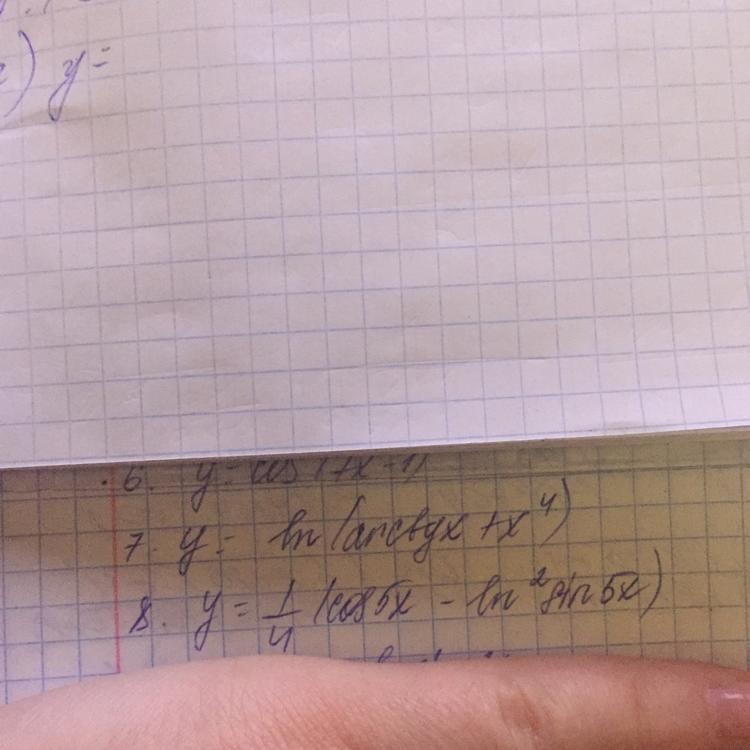 ) y =
6. y = cos (7x - 1)
7. y = ln (arctgx + x⁴)
8. y = 1/4 (cos5x - ln² sin5x)